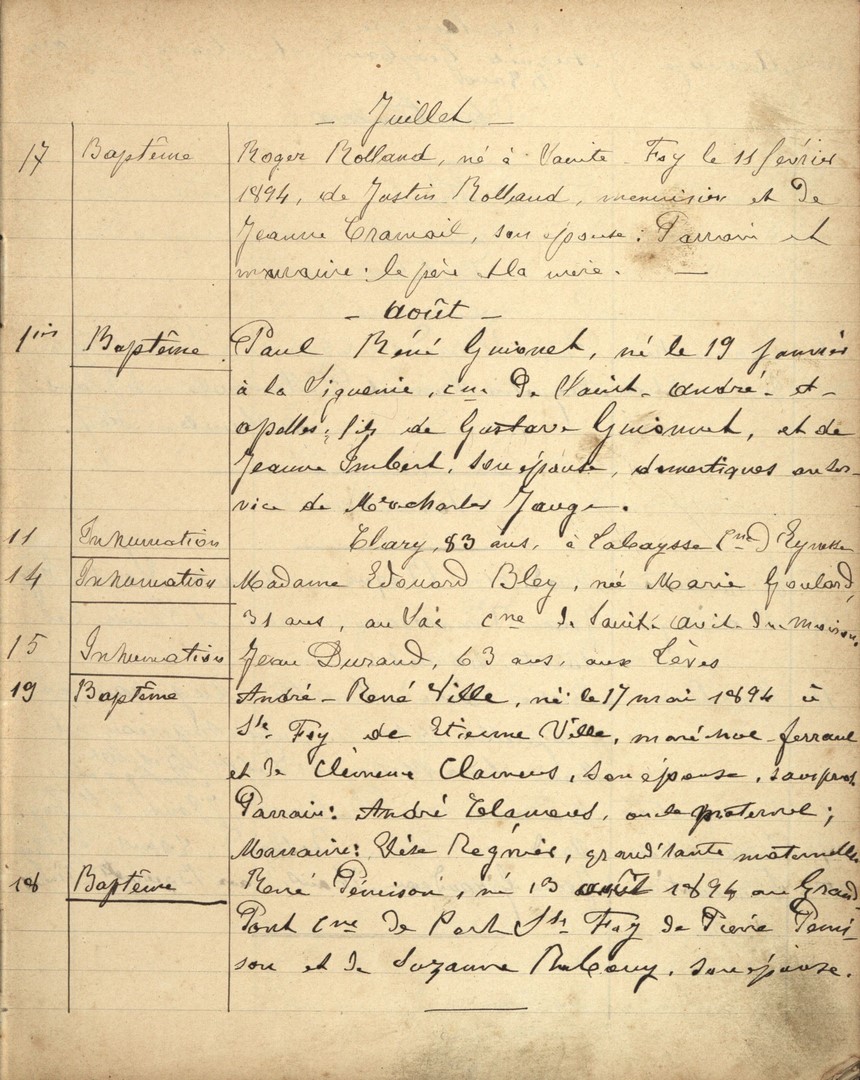 - Juillet -
17 Baptême Roger Rolland, né à Sainte-Foy le 11 février
1894, de Justin Rolland, menuisier et de
Jeanne Cramail, son épouse. Parrain et
marraine : le père et la mère. —
- Août -
1er Baptême. Paul René Guionet, né le 19 janvier
à la Siguenie, cne de Saint-André-et-
apelles; fils de Gustave Guionnet, et de
Jeanne Imbert, son épouse, domestiques au ser-
vice de Mr Charles Jauge.
11 Inhumation Clary, 83 ans, à Labaysse Cne d'Eynesse
14 Inhumation Madame Edouard Bley, née Marie Goulard,
31 ans, au cne de Saint-avit-du-moiron.
15 Inhumation Jean Durand, 63 ans, aux Lèves
19 Baptême André-René Ville, né le 17 mai 1894 à
Ste Foy de Etienne Ville, maréchal-ferrant
et de Clamens, son épouse, sans prof.
Parrain: André Clamens, oncle maternel;
Marraine: Régnier, grand'tante maternelle
18 Baptême René Pénisson, né 13 août 1894 au Grand
Pont Cne de Port Ste Foy de Pierre Péni-
son et de Suzanne son épouse.